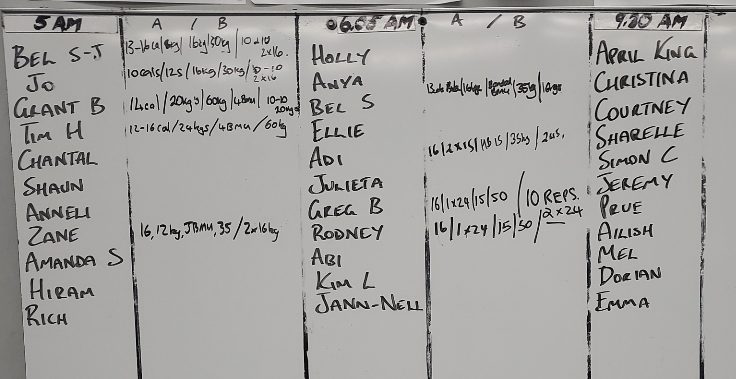 5 AM A / B 06.05 AM A / B 9.20 AM
BEL S-J 13-16cal/8kg/16kg/30kg/10x10
2x16.
JO 10cals/12s/16kg/30kg/10-10
2x16
GRANT B 14cal/20kgs/60kg/4BMU/10-10
20kgs
TIM H 12-16cal/24kgs/4BMU/60kg
CHANTAL
SHAUN
ANNELI
ZANE 16, 12kg, JBMU, 35/2x16kg
AMANDA S
HIRAM
RICH
HOLLY
ANYA
BEL S /35kg/
ELLIE
ADI 16/2x15/ 15/35kg/
JULIETA
GREG B 16/1x24/15/50/10 REPS.
RODNEY 16/1x24/15/50/2x24
ABI
KIM L
JANN-NELL
APRIL KING
CHRISTINA
COURTNEY
SHARELLE
SIMON C
JEREMY
PRUE
AILISH
MEL
DORIAN
EMMA